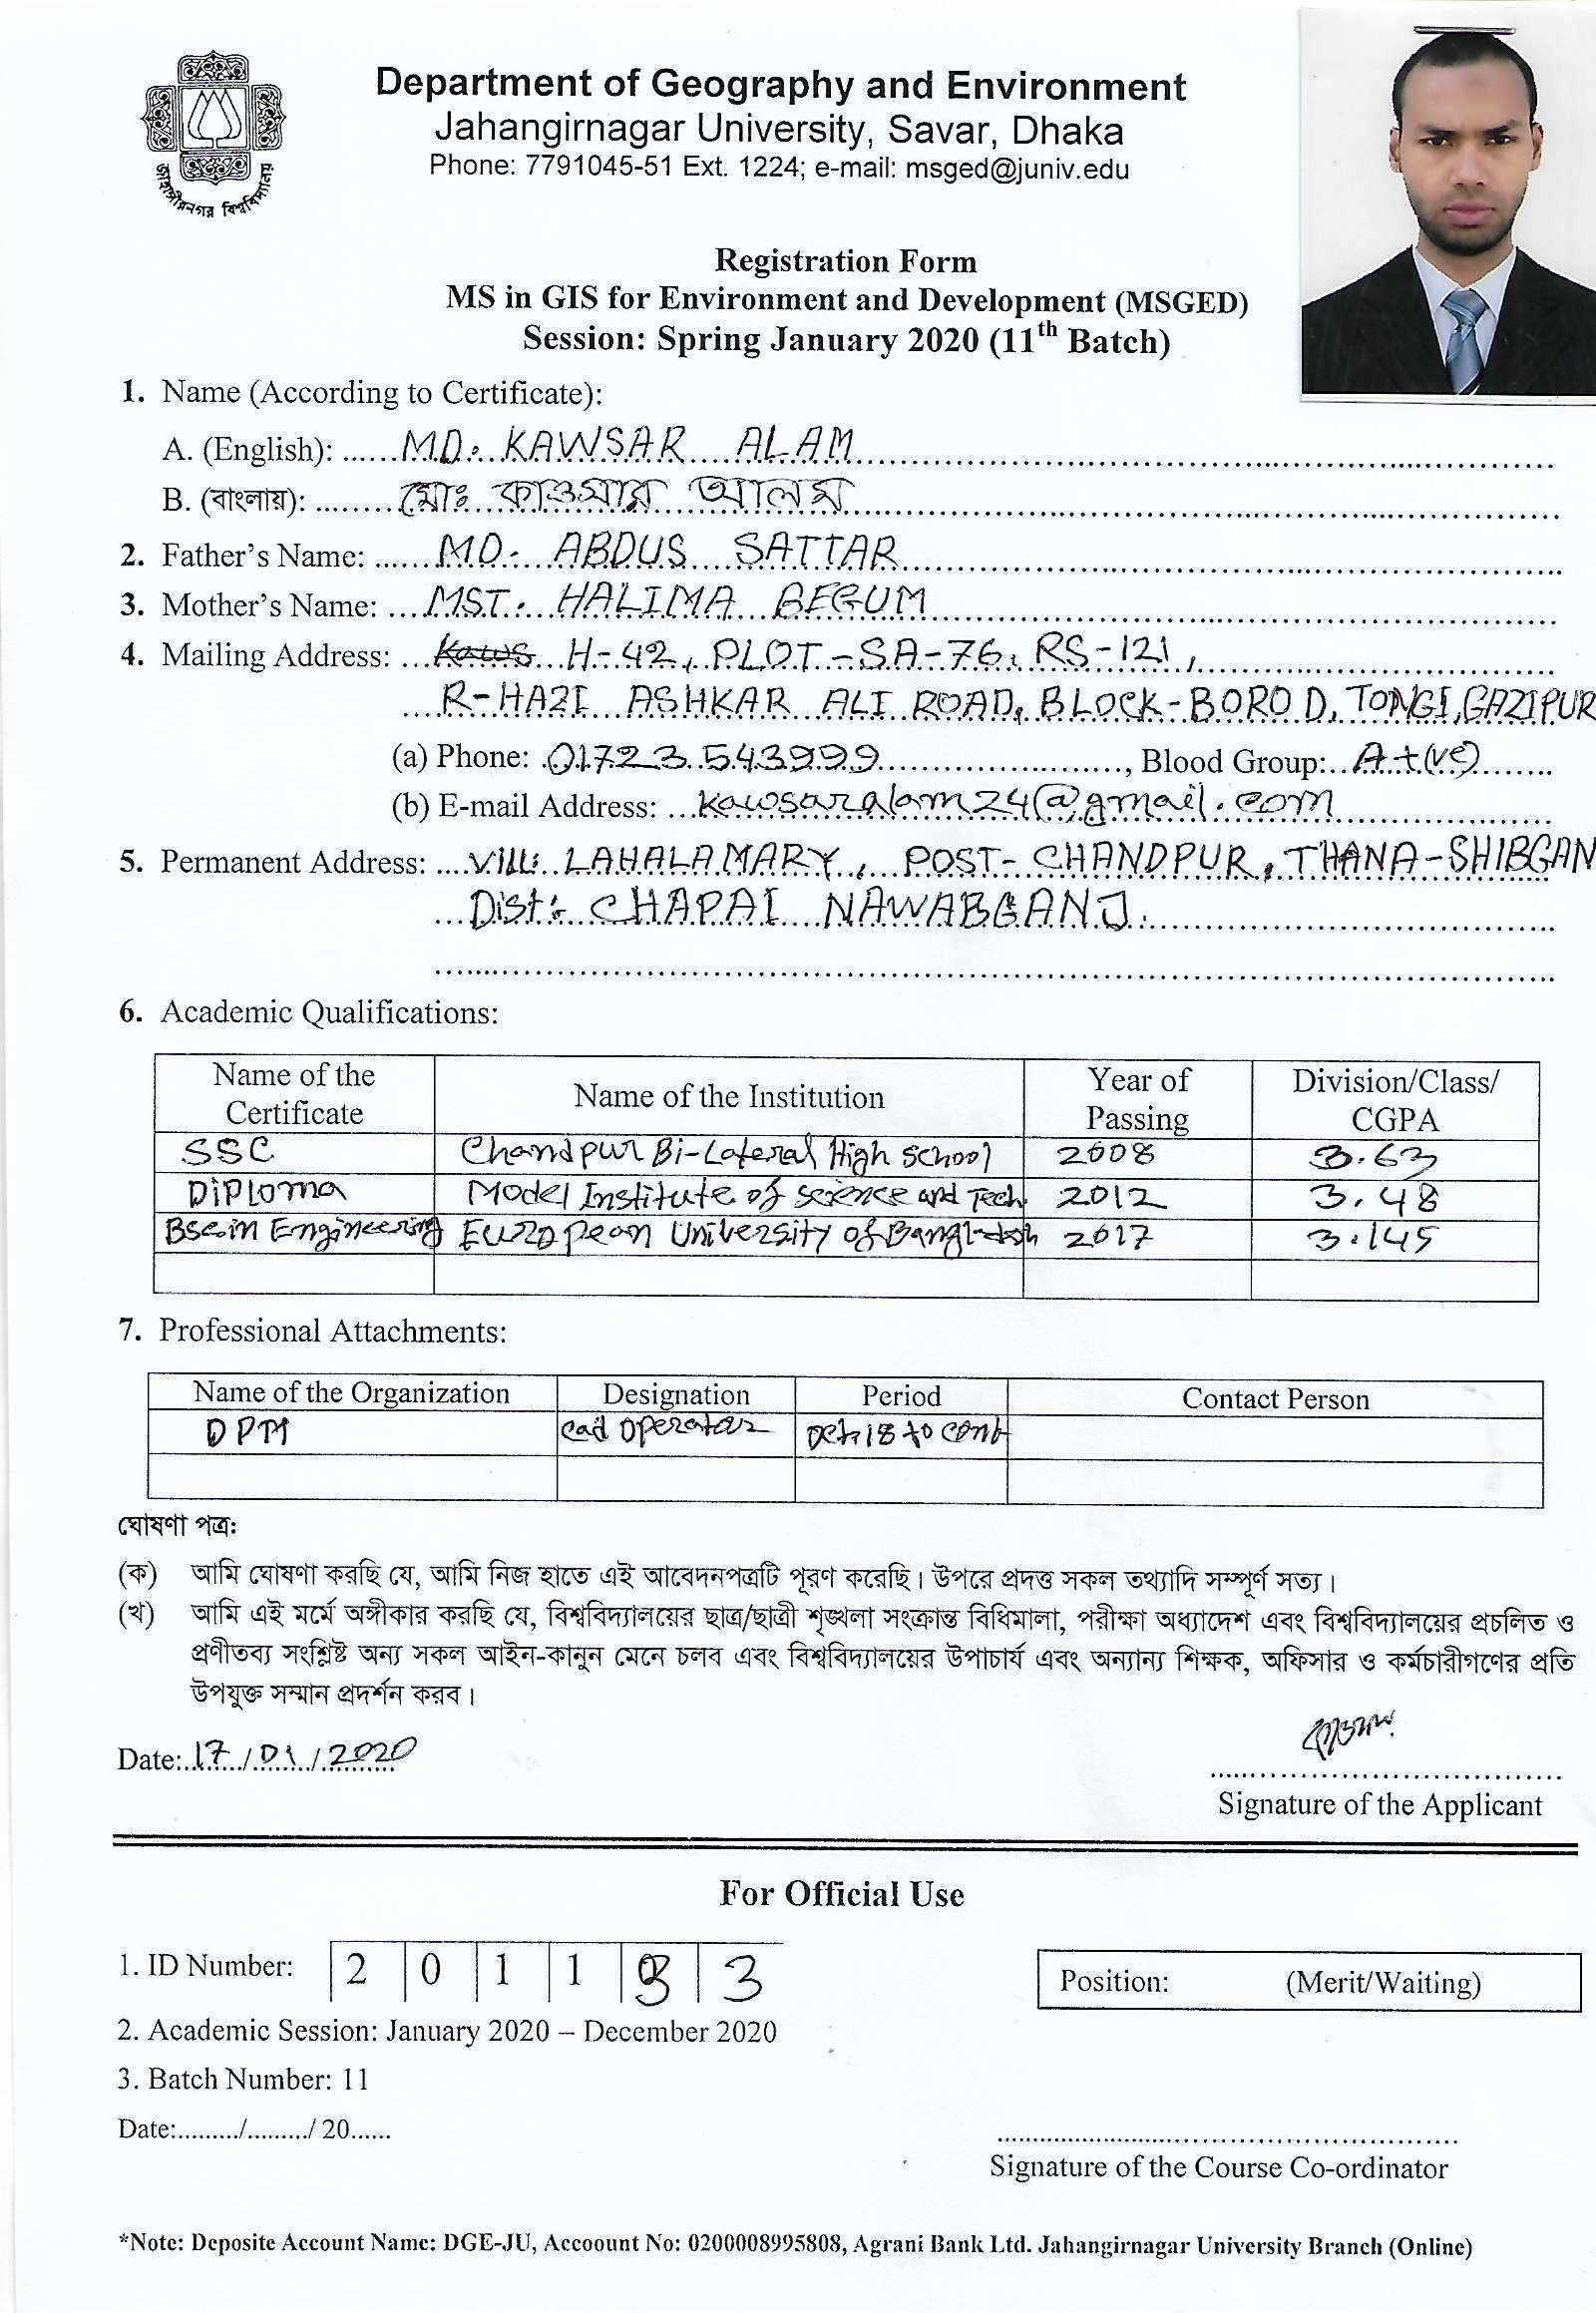 জাহাঙ্গীরনগর বিশ্ববিদ্যালয়
Department of Geography and Environment
Jahangirnagar University, Savar, Dhaka
Phone: 7791045-51 Ext. 1224; e-mail: msged@juniv.edu
Registration Form
MS in GIS for Environment and Development (MSGED)
Session: Spring January 2020 (11th Batch)
1. Name (According to Certificate):
A. (English): MD. KAWSAR ALAM
B. (বাংলায়): মোঃ কাওসার আলম
2. Father's Name: MD. ABDUS SATTAR
3. Mother's Name: MST. HALIMA BEGUM
4. Mailing Address: H-42, PLOT-SA-76, RS-121,
R-HAZI ASHKAR ALI ROAD, BLOCK-BORO D, TONGI, GAZIPUR
(a) Phone: 01723543999, Blood Group: A+(ve)
(b) E-mail Address: kawsaralam24@gmail.com
5. Permanent Address: Vill: LAHALAMARY, POST- CHANDPUR, THANA-SHIBGAN
Dist: CHAPAI NAWABGANJ.
6. Academic Qualifications:
Name of the Certificate Name of the Institution Year of Passing Division/Class/ CGPA
SSC Chandpur Bi-Lateral High School 2008 3.63
Diploma Model Institute of science and Tech. 2012 3.48
Bsc in Engineering European University of Bangladesh 2017 3.145
7. Professional Attachments:
Name of the Organization Designation Period Contact Person
DPM Cad Operator Oct,18 to cont
ঘোষণা পত্র:
(ক) আমি ঘোষণা করছি যে, আমি নিজ হাতে এই আবেদনপত্রটি পূরণ করেছি। উপরে প্রদত্ত সকল তথ্যাদি সম্পূর্ণ সত্য।
(খ) আমি এই মর্মে অঙ্গীকার করছি যে, বিশ্ববিদ্যালয়ের ছাত্র/ছাত্রী শৃঙ্খলা সংক্রান্ত বিধিমালা, পরীক্ষা অধ্যাদেশ এবং বিশ্ববিদ্যালয়ের প্রচলিত ও
প্রণীতব্য সংশ্লিষ্ট অন্য সকল আইন-কানুন মেনে চলব এবং বিশ্ববিদ্যালয়ের উপাচার্য এবং অন্যান্য শিক্ষক, অফিসার ও কর্মচারীগণের প্রতি
উপযুক্ত সম্মান প্রদর্শন করব।
Date: 17/01/2020
Signature of the Applicant
For Official Use
1. ID Number: 2 0 1 1 3 3
Position: (Merit/Waiting)
2. Academic Session: January 2020 – December 2020
3. Batch Number: 11
Date:........./........./ 20......
Signature of the Course Co-ordinator
*Note: Deposite Account Name: DGE-JU, Accoount No: 0200008995808, Agrani Bank Ltd. Jahangirnagar University Branch (Online)